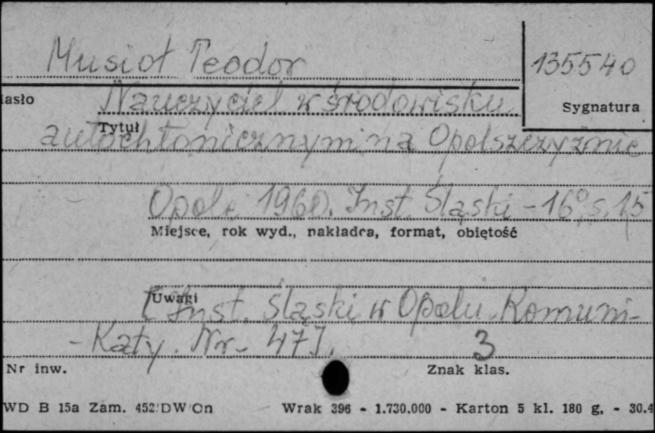 Musioł Teodor 135540
asło Nauczyciel w środowisku Sygnatura
Tytuł
autochtonicznym na Opolszczyźnie
Opole 1960. Inst. Śląski - 16°, s. 15
Miejsce, rok wyd., nakładca, format, objętość
Uwagi
[Inst. Śląski w Opolu. Komuni-
- Katy. Nr. 47].
3
Nr inw. Znak klas.
WD B 15a Zam. 452/DW/On Wrak 396 - 1.730.000 - Karton 5 kl. 180 g. - 30.4